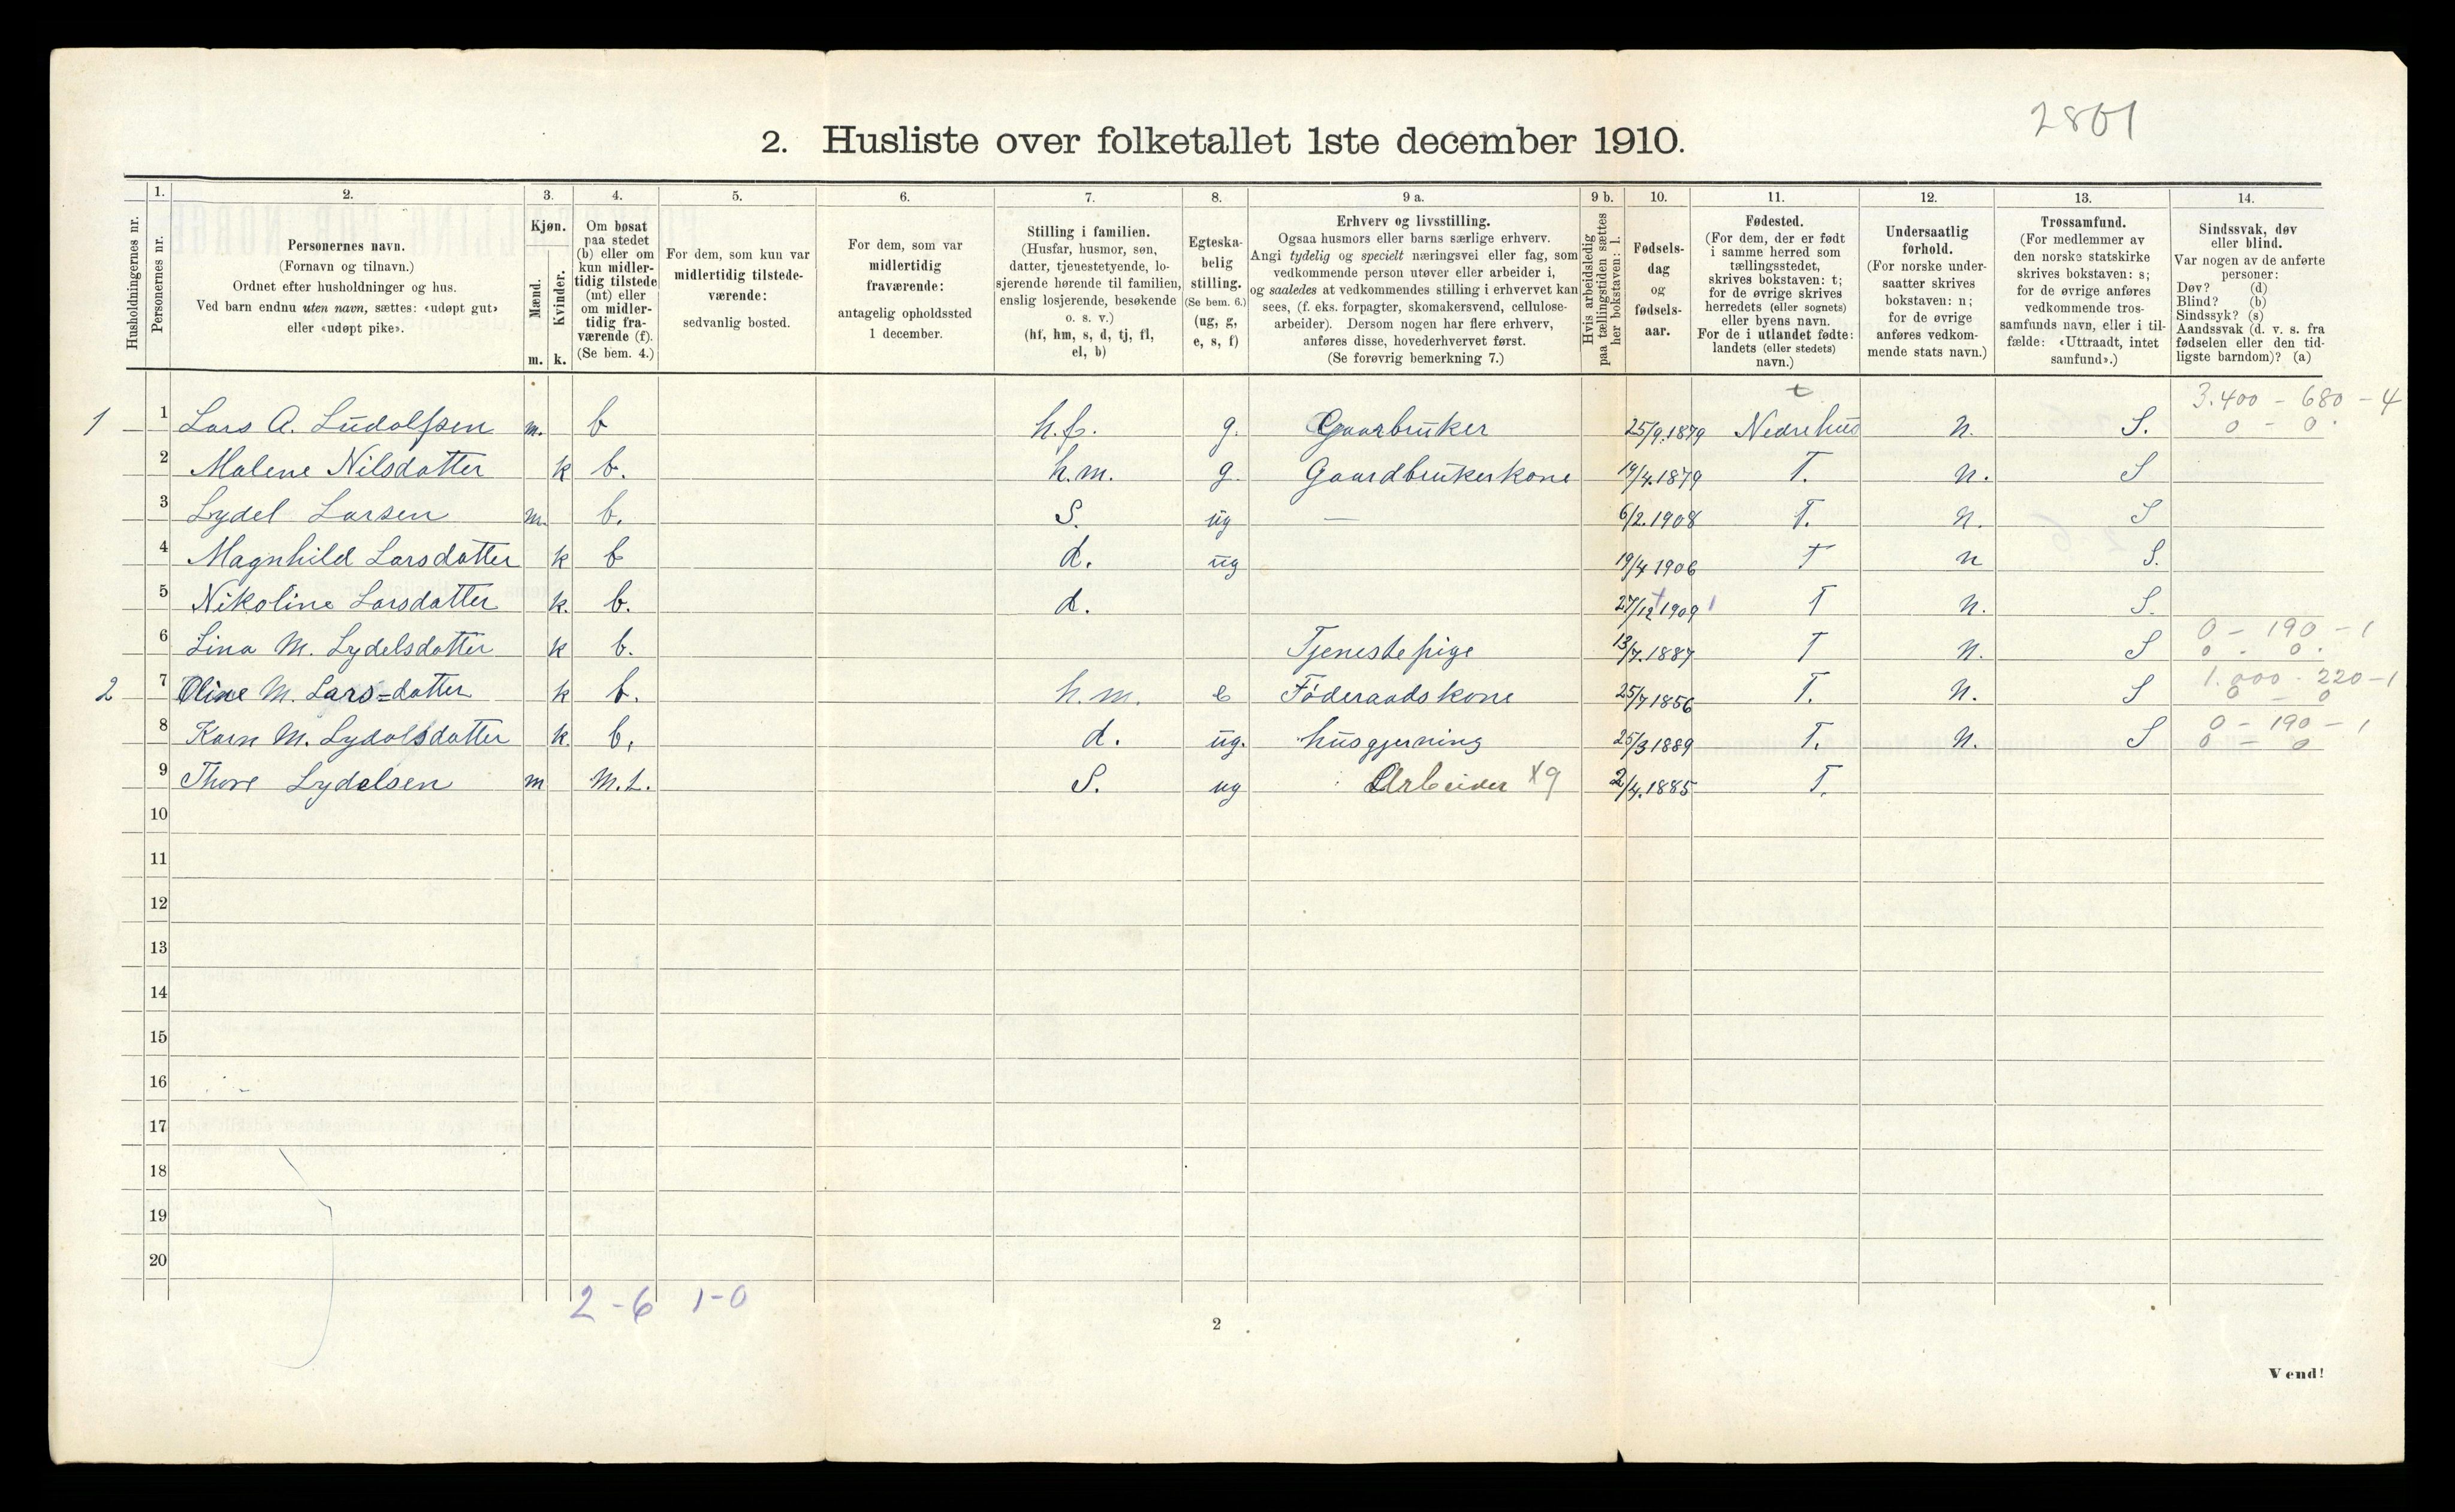 2801
2. Husliste over folketallet 1ste december 1910.
Husholdningernes nr.
1.
Personernes nr.
2.
Personernes navn.
(Fornavn og tilnavn.)
Ordnet efter husholdninger og hus.
Ved barn endnu uten navn, sættes: «udøpt gut»
eller «udøpt pike».
3.
Kjøn.
Mænd.
Kvinder.
m. k.
4.
Om bosat
paa stedet
(b) eller om
kun midler-
tidig tilstede
(mt) eller
om midler-
tidig fra-
værende (f).
(Se bem. 4.)
5.
For dem, som kun var
midlertidig tilstede-
værende:
sedvanlig bosted.
6.
For dem, som var
midlertidig
fraværende:
antagelig opholdssted
1 december.
7.
Stilling i familien.
(Husfar, husmor, søn,
datter, tjenestetyende, lo-
sjerende hørende til familien,
enslig losjerende, besøkende
o. s. v.)
(hf, hm, s, d, tj, fl,
el, b)
8.
Egteska-
belig
stilling.
(Se bem. 6.)
(ug, g,
e, s, f)
9 a.
Erhverv og livsstilling.
Ogsaa husmors eller barns særlige erhverv.
Angi tydelig og specielt næringsvei eller fag, som
vedkommende person utøver eller arbeider i,
og saaledes at vedkommendes stilling i erhvervet kan
sees, (f. eks. forpagter, skomakersvend, cellulose-
arbeider). Dersom nogen har flere erhverv,
anføres disse, hovederhvervet først.
(Se forøvrig bemerkning 7.)
9 b.
Hvis arbeidsledig
paa tællingstiden sættes
her bokstaven: l.
10.
Fødsels-
dag
og
fødsels-
aar.
11.
Fødested.
(For dem, der er født
i samme herred som
tællingsstedet,
skrives bokstaven: t;
for de øvrige skrives
herredets (eller sognets)
eller byens navn.
For de i utlandet fødte:
landets (eller stedets)
navn.)
12.
Undersaatlig
forhold.
(For norske under-
saatter skrives
bokstaven: n;
for de øvrige
anføres vedkom-
mende stats navn.)
13.
Trossamfund.
(For medlemmer av
den norske statskirke
skrives bokstaven: s;
for de øvrige anføres
vedkommende tros-
samfunds navn, eller i til-
fælde: «Uttraadt, intet
samfund».)
14.
Sindssvak, døv
eller blind.
Var nogen av de anførte
personer:
Døv? (d)
Blind? (b)
Sindssyk? (s)
Aandssvak (d. v. s. fra
fødselen eller den tid-
ligste barndom)? (a)
t 3.400 - 680 - 4
1 1 Lars A. Ludolfsen m. b h.f. g. Gaarbruker 25/9.1879 Nedrehus n. S. 0 - 0.
2 Malene Nilsdatter k b. h.m. g. Gaardbrukerkone 19/4.1879 T. n. S
3 Lydel Larsen m. b. S. ug — 6/2.1908 T. n. S
4 Magnhild Larsdatter k b d. ug 19/4 1906 T n S.
5 Nikoline Larsdatter k. b. d. 27/12 1909 T n. S.
0 - 190 - 1
6 Lina M. Lydelsdatter k b. Tjenestepige 13/7.1887 T n. S 0 - 0.
1.000 - 220 - 1
2 7 Oline M. Lars=datter k b. h.m. e Föderaadskone 25/7 1856 T. n. S 0 - 0
0 - 190 - 1
8 Karn M. Lydolsdatter k. b. d. ug. husgjerning 25/3 1889 T. n. S 0 - 0
9 Thore Lydelsen m M.t. S. ug Arbeider x9 2/4.1885 T.
10
11
12
13
14
15
16
17
18
19
20
2 - 6 1 - 0
2
Vend!